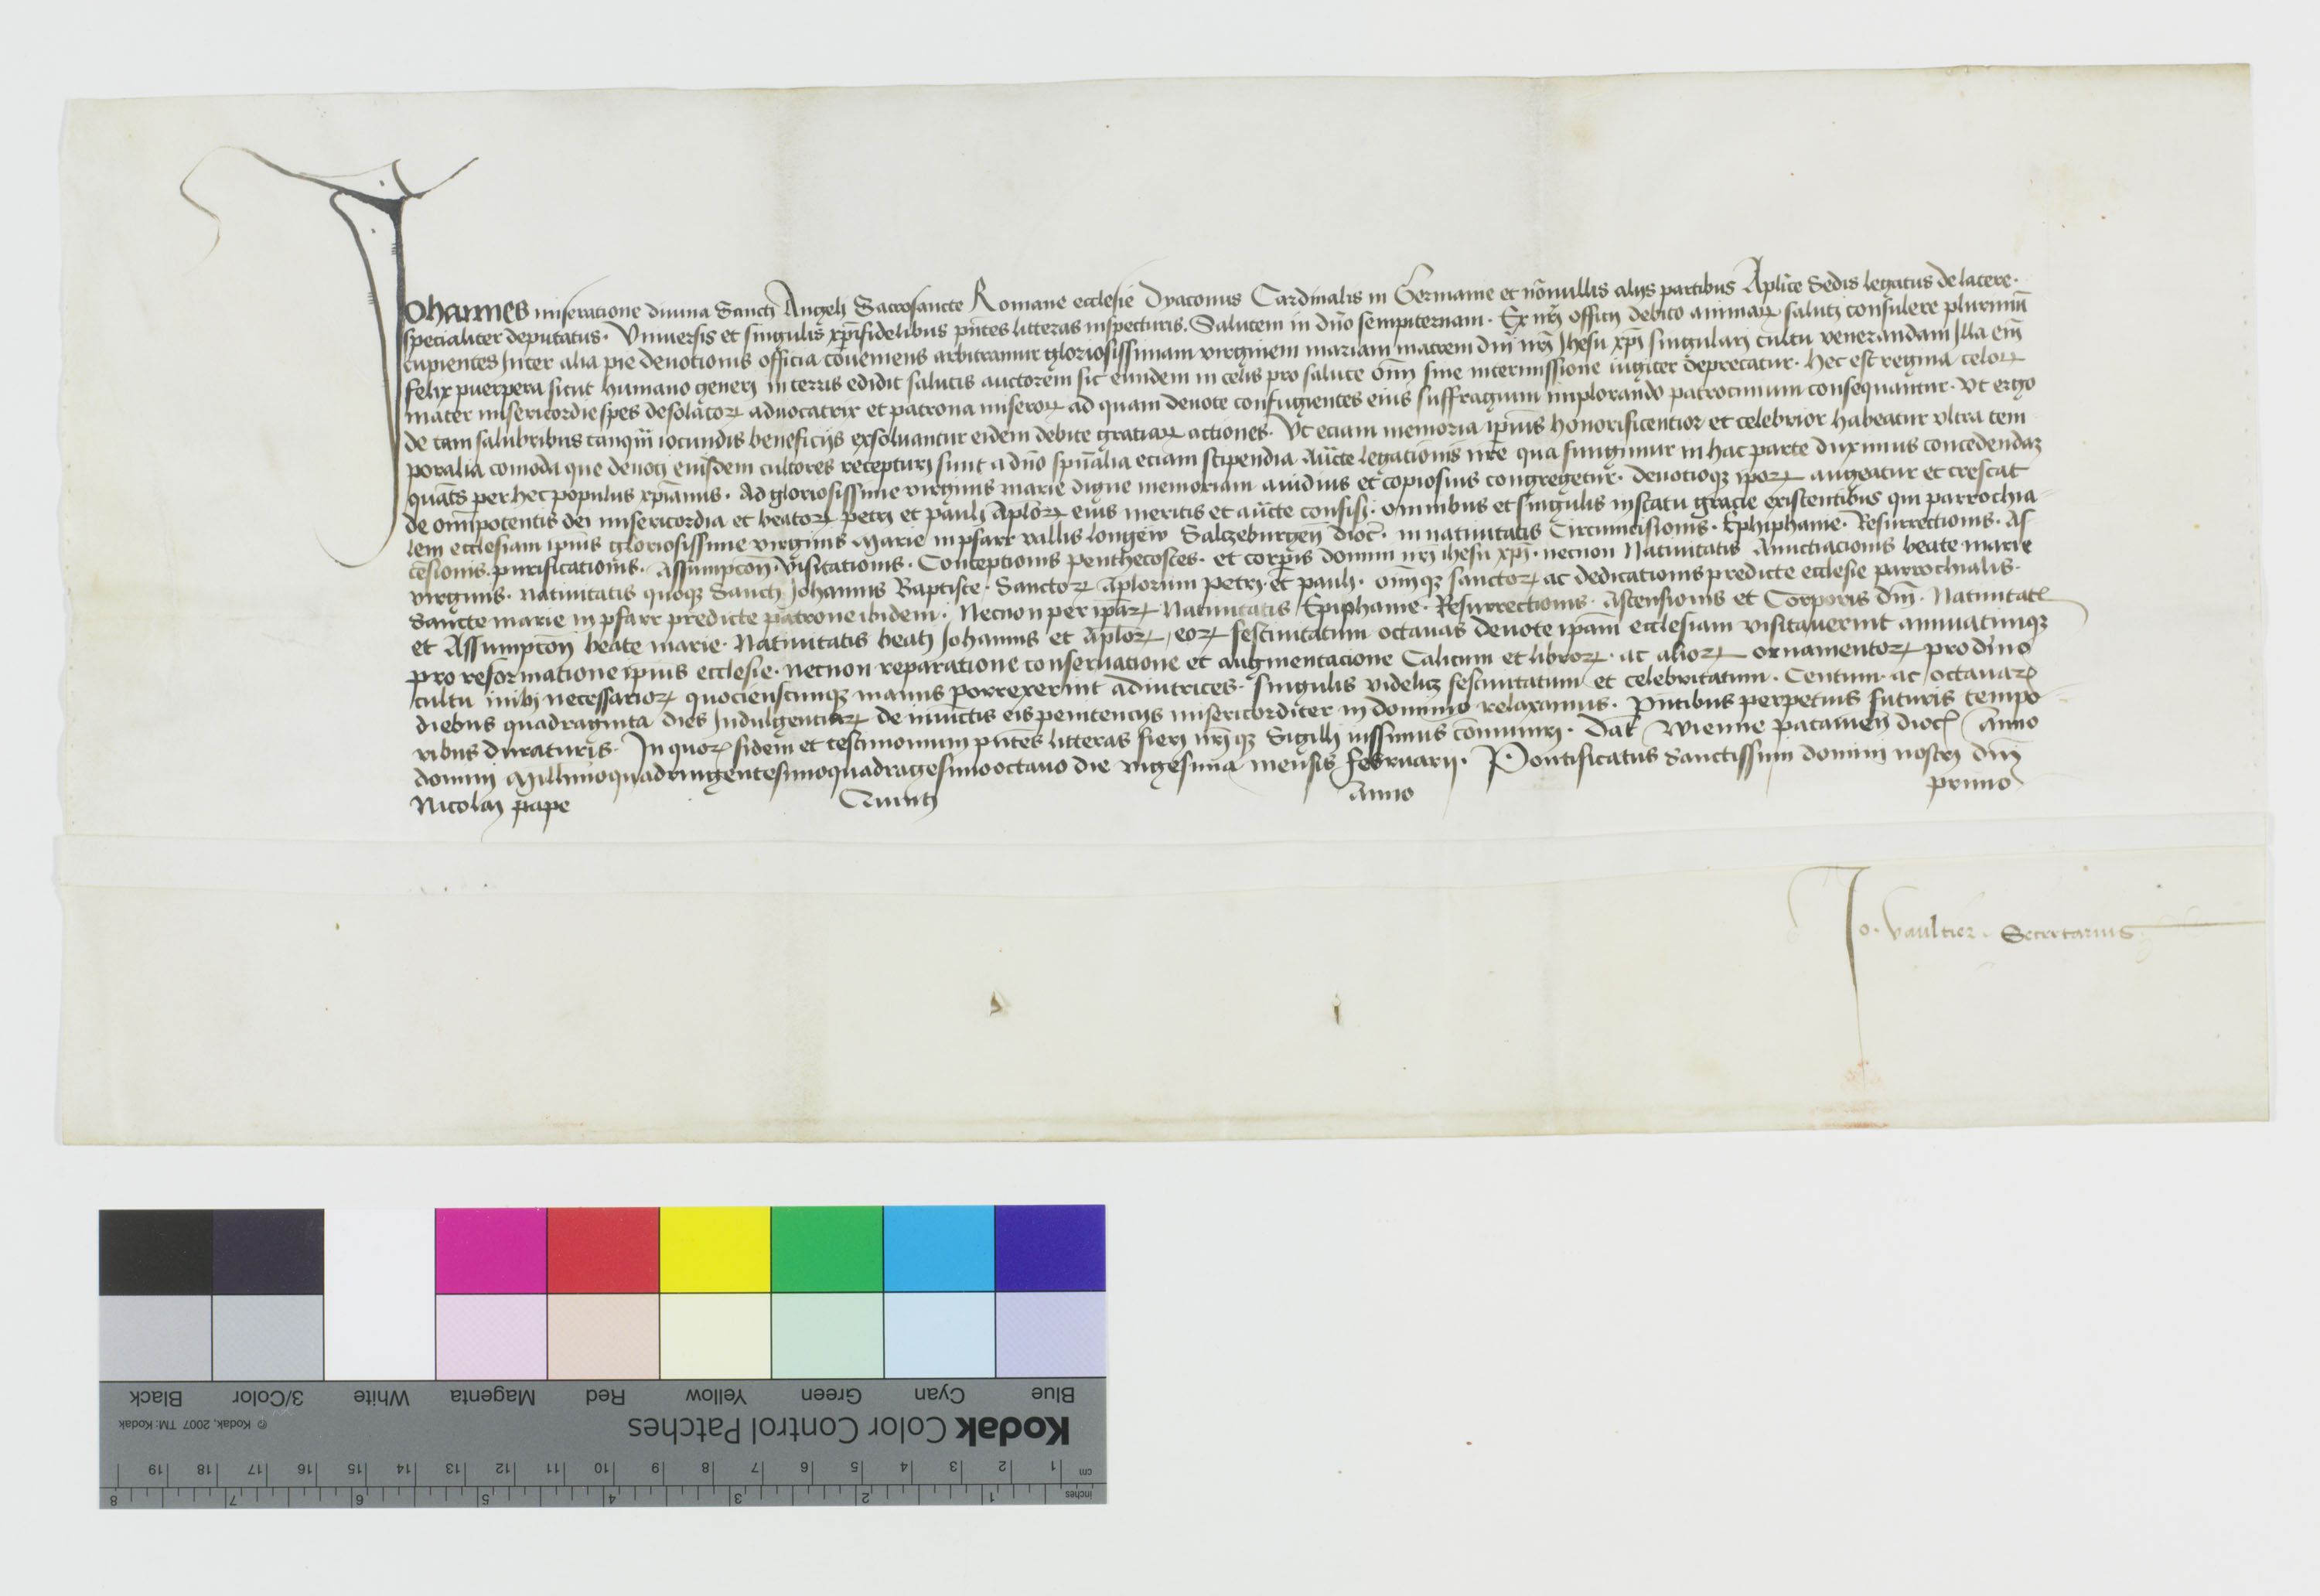 Johannes miseratione diuina Sancti Angeli Sacrosancte Romane ecclesie Dyaconus Cardinalis in Germanie et nōnullis alijs partibus Aplice Sedis legatus de latere·
specialiter deputatus· Vniuersis et singulis xp̄ifidelibus pn̄tes litteras inspecturis. Salutem in dn̄o sempiternam· Ex nr̄i officij debito animaꝝ saluti consulere plurimū
cupientes Inter alia pie deuotionis officia cōueniens arbitramur gloriosissimam virginem mariam matrem dn̄i nr̄i Jhesu xp̄i singulari cultu venerandam Illa em̄
felix puerpera sicut humano generi in terris edidit salutis auctorem sic eundem in celis pro salute om̄ sine intermissione iugiter deprecatur· hec est regina celoꝝ
mater misericordie spes desolatoꝝ aduocatrix et patrona miseroꝝ ad quam deuote confugientes eius suffragium implorando patrocinium consequantur· Vt ergo
de tam salubribus tanqm̄ iocundis beneficijs exsoluantur eidem debite gratiaꝝ actiones· Vt eciam memoria ip̄ius honorificentior et celebrior habeatur vltra tem
poralia comoda que deuoti eiusdem cultores recepturi sunt a dn̄o spūalia eciam stipendia Aūcte legationis nr̄e qua fungimur in hac parte duximus concedendaz
quāts per hec populus xp̄ianus· Ad gloriosissime virginis marie digne memoriam auidius et copiosius congregetur· deuotioqꝫ ip̄oꝝ augeatur et crescat
de om̄ipotentis dei misericordia et beatoꝝ petri et pauli Ap̄loꝝ eius meritis et aūcte confisi· omnibus et singulis in statu gracie existentibus qui parrochia
lem ecclesiam ip̄ius gloriosissime virginis Marie in pfarr vallis longew Saltzeburgen̄ dioc̄· in natiuitatis Circumcisionis· Ephiphanie· Resurrectionis· As
cēsionis· purificationis· Assumpcōn̄· Visitationis· Conceptionis penthecostes· et corp̄is domini nr̄i ihesu xp̄i· necnon Natiuitatis Annctiacionis beate marie
virginis· natiuitatis quoqꝫ Sancti Johannis Baptiste· Sanctoꝝ Ap̄lorum petri et pauli· om̄iqꝫ sanctoꝝ ac dedicationis predicte ecclesie parrochialis·
Sancte marie in pfarr predicte patrone ibidem· Necnon per ip̄aꝝ Natiuitatis Epiphanie· Resurrectionis· Ascensionis et Corporis dn̄i· Natiuitat
et Assumpcōn̄ beate marie· Natiuitatis beati Johannis et Ap̄loꝝ, eoꝝ festiuitatum octauas deuote ip̄am ecclesiam visitauerint annuatimqꝫ
pro reformatione ip̄ius ecclesie· necnon reparatione conseruatione et augmentacione Calicum et libroꝝ· ac alioꝝ ornamentoꝝ pro diuino
cultu inibi necessarioꝝ quocienscunqꝫ manus porrexerint adiutrices· singulis videlicꝫ festiuitatum et celebritatum· Centum· ac octauaꝝ
diebus quadraginta dies Indulgentiaꝝ de iniunctis eis penitencijs misericorditer in domino relaxamus· Pn̄tibus perpetuis futuris tempo
ribus duraturis· In quoꝝ fidem et testimonium pn̄tes litteras fieri nr̄iqꝫ Sigilli iussimus cōmuniri· Dat̄ Wienne patauien̄ dioc̄ Anno
domini Millesimoquadringentesimoquadragesimooctauo die vigesima mensis februarij· Pontificatus Sanctissimi domini nostri dn̄i
Nicolai pape Quinti Anno primo
Jo· Vaultier· Secretarius
Blue Cyan Green Yellow Red Magenta White 3/Color Black
Kodak Color Control Patches © Kodak, 2007 TM: Kodak
cm 1 2 3 4 5 6 7 8 9 10 11 12 13 14 15 16 17 18 19
inches 1 2 3 4 5 6 7 8